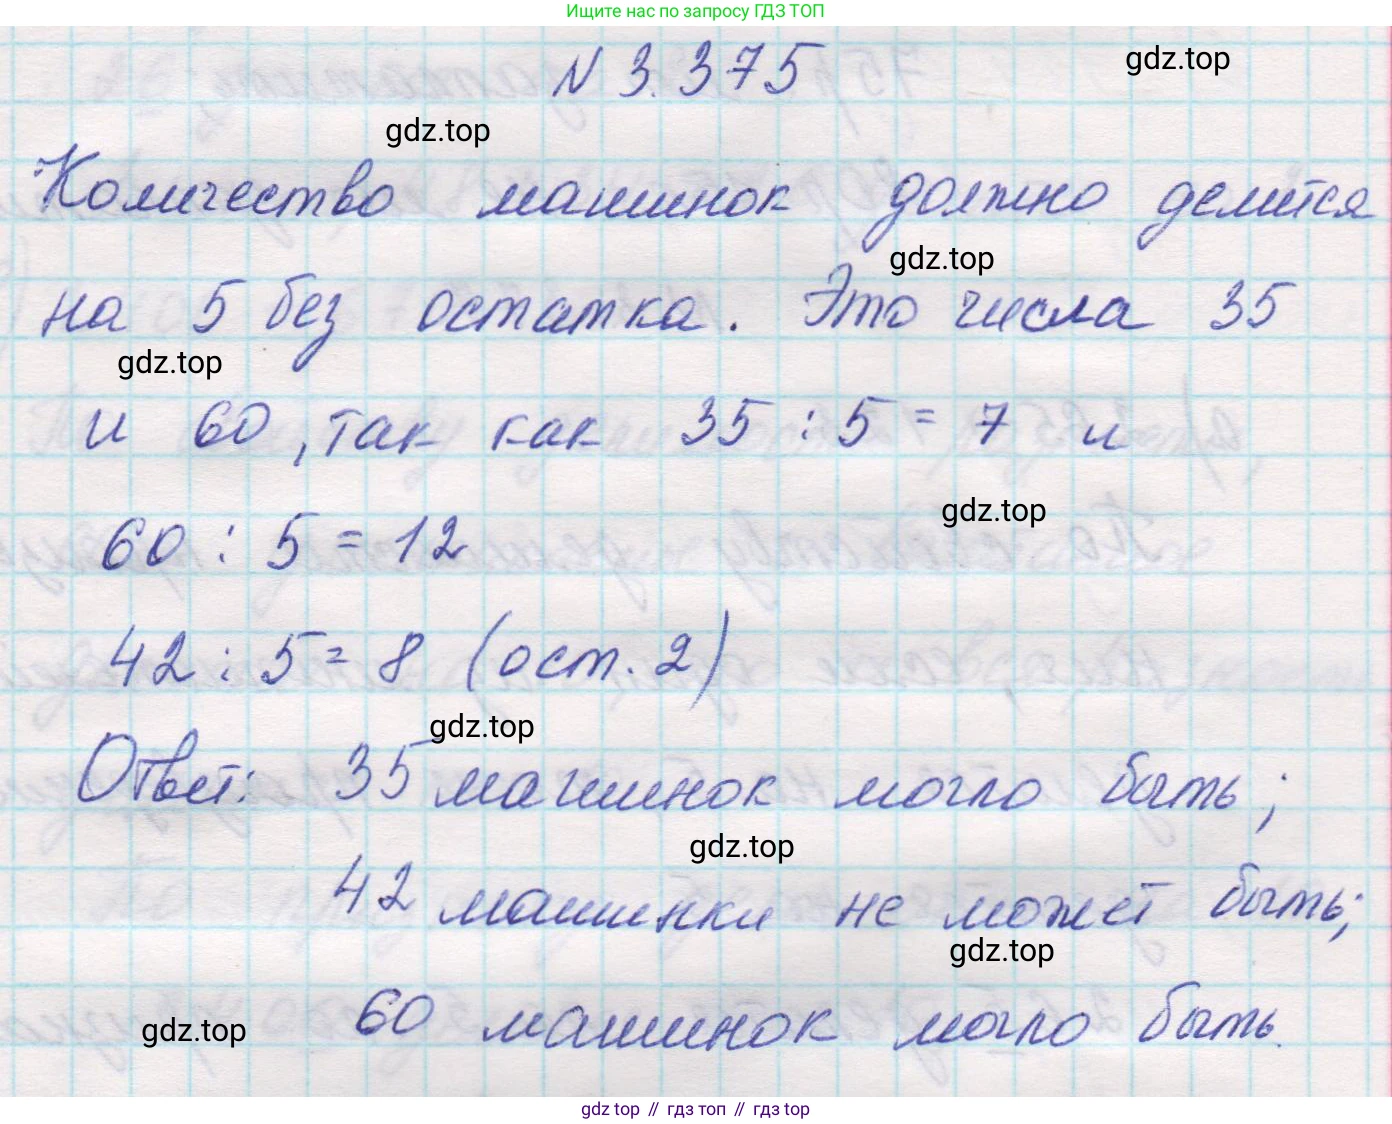 Ищите нас по запросу ГДЗ ТОП
N 3.375
gdz.top
gdz.top
Количество машинок должно делится
gdz.top
на 5 без остатка. Это числа 35
gdz.top
и 60, так как 35 : 5 = 7 и
gdz.top
60 : 5 = 12
42 : 5 = 8 (ост. 2)
gdz.top
Ответ: 35 машинок могло быть;
gdz.top
42 машинки не может быть;
gdz.top
60 машинок могло быть.
gdz.top
gdz top // гдз топ // гдз top